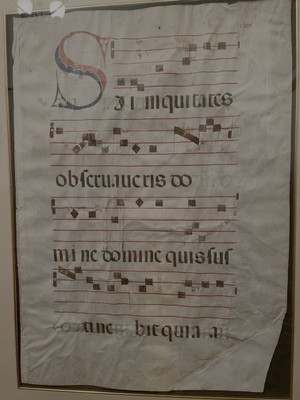 Si iniquitates
obseruaueris do
mi ne domine quis sus
tine bit quia a